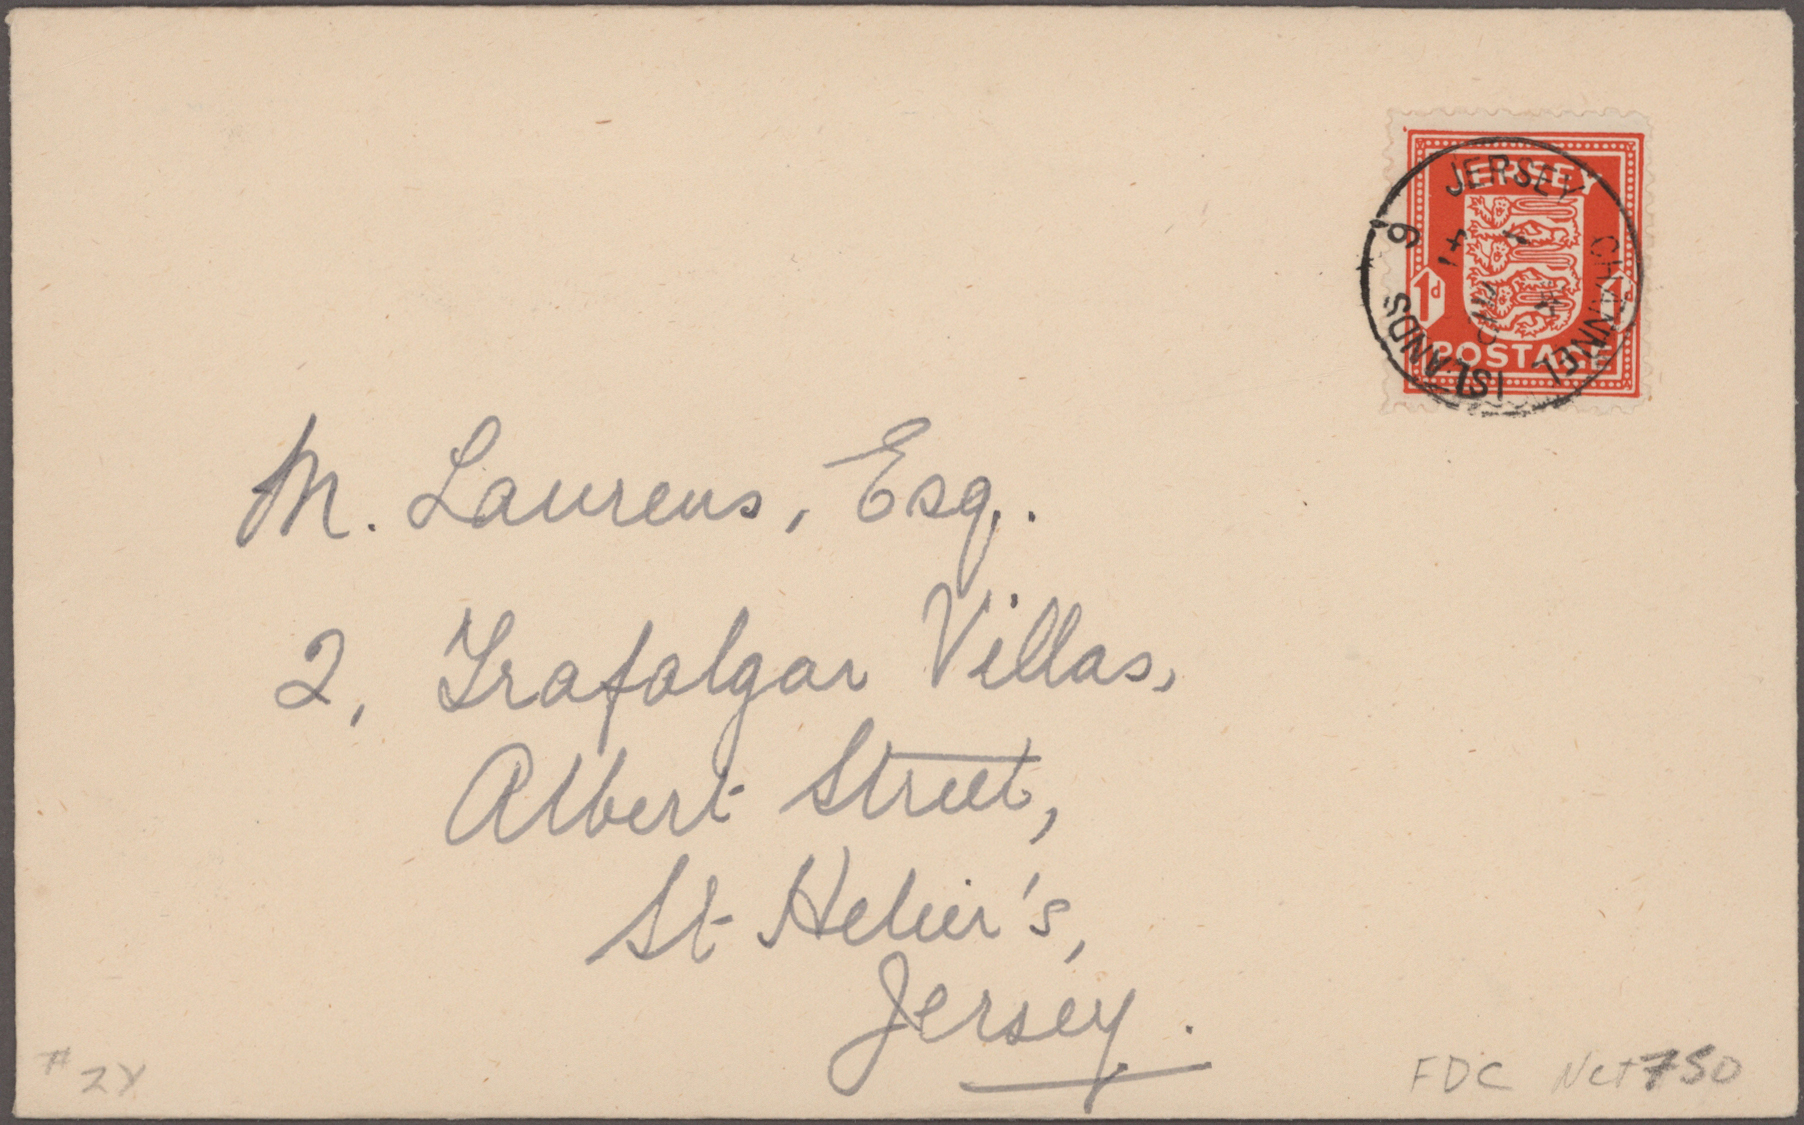 JERSEY
1d 1d
POSTAGE
JERSEY CHANNEL ISLANDS
9
M. Laurens, Esq.
2, Trafalgar Villas,
Albert Street,
St Helier's,
Jersey.
# 2Y
FDC Net 750